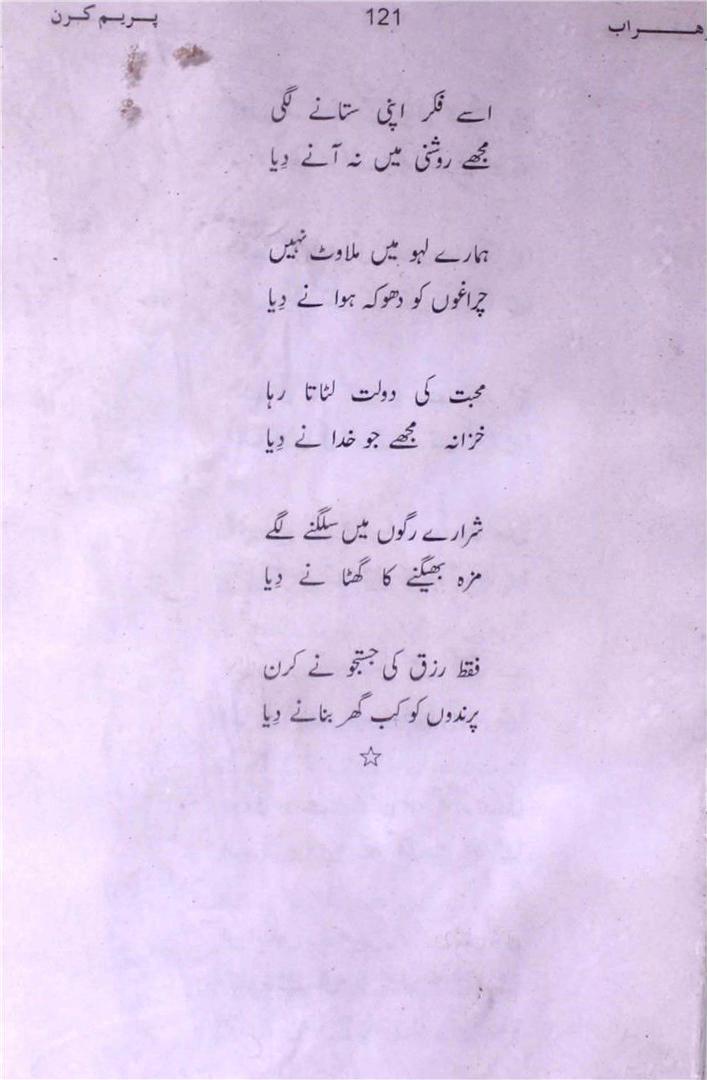 پریم کرن
121
اسے فکر اپنی ستانے لگی
مجھے روشنی میں نہ آنے دِیا
ہمارے لہو میں ملاوٹ نہیں
چراغوں کو دھوکہ ہوا نے دِیا
محبت کی دولت لٹاتا رہا
خزانہ مجھے جو خدا نے دِیا
شرارے رگوں میں سلگنے لگے
مزہ بھیگنے کا گھٹا نے دِیا
فقط رزق کی جستجو نے کرن
پرندوں کو کب گھر بنانے دِیا